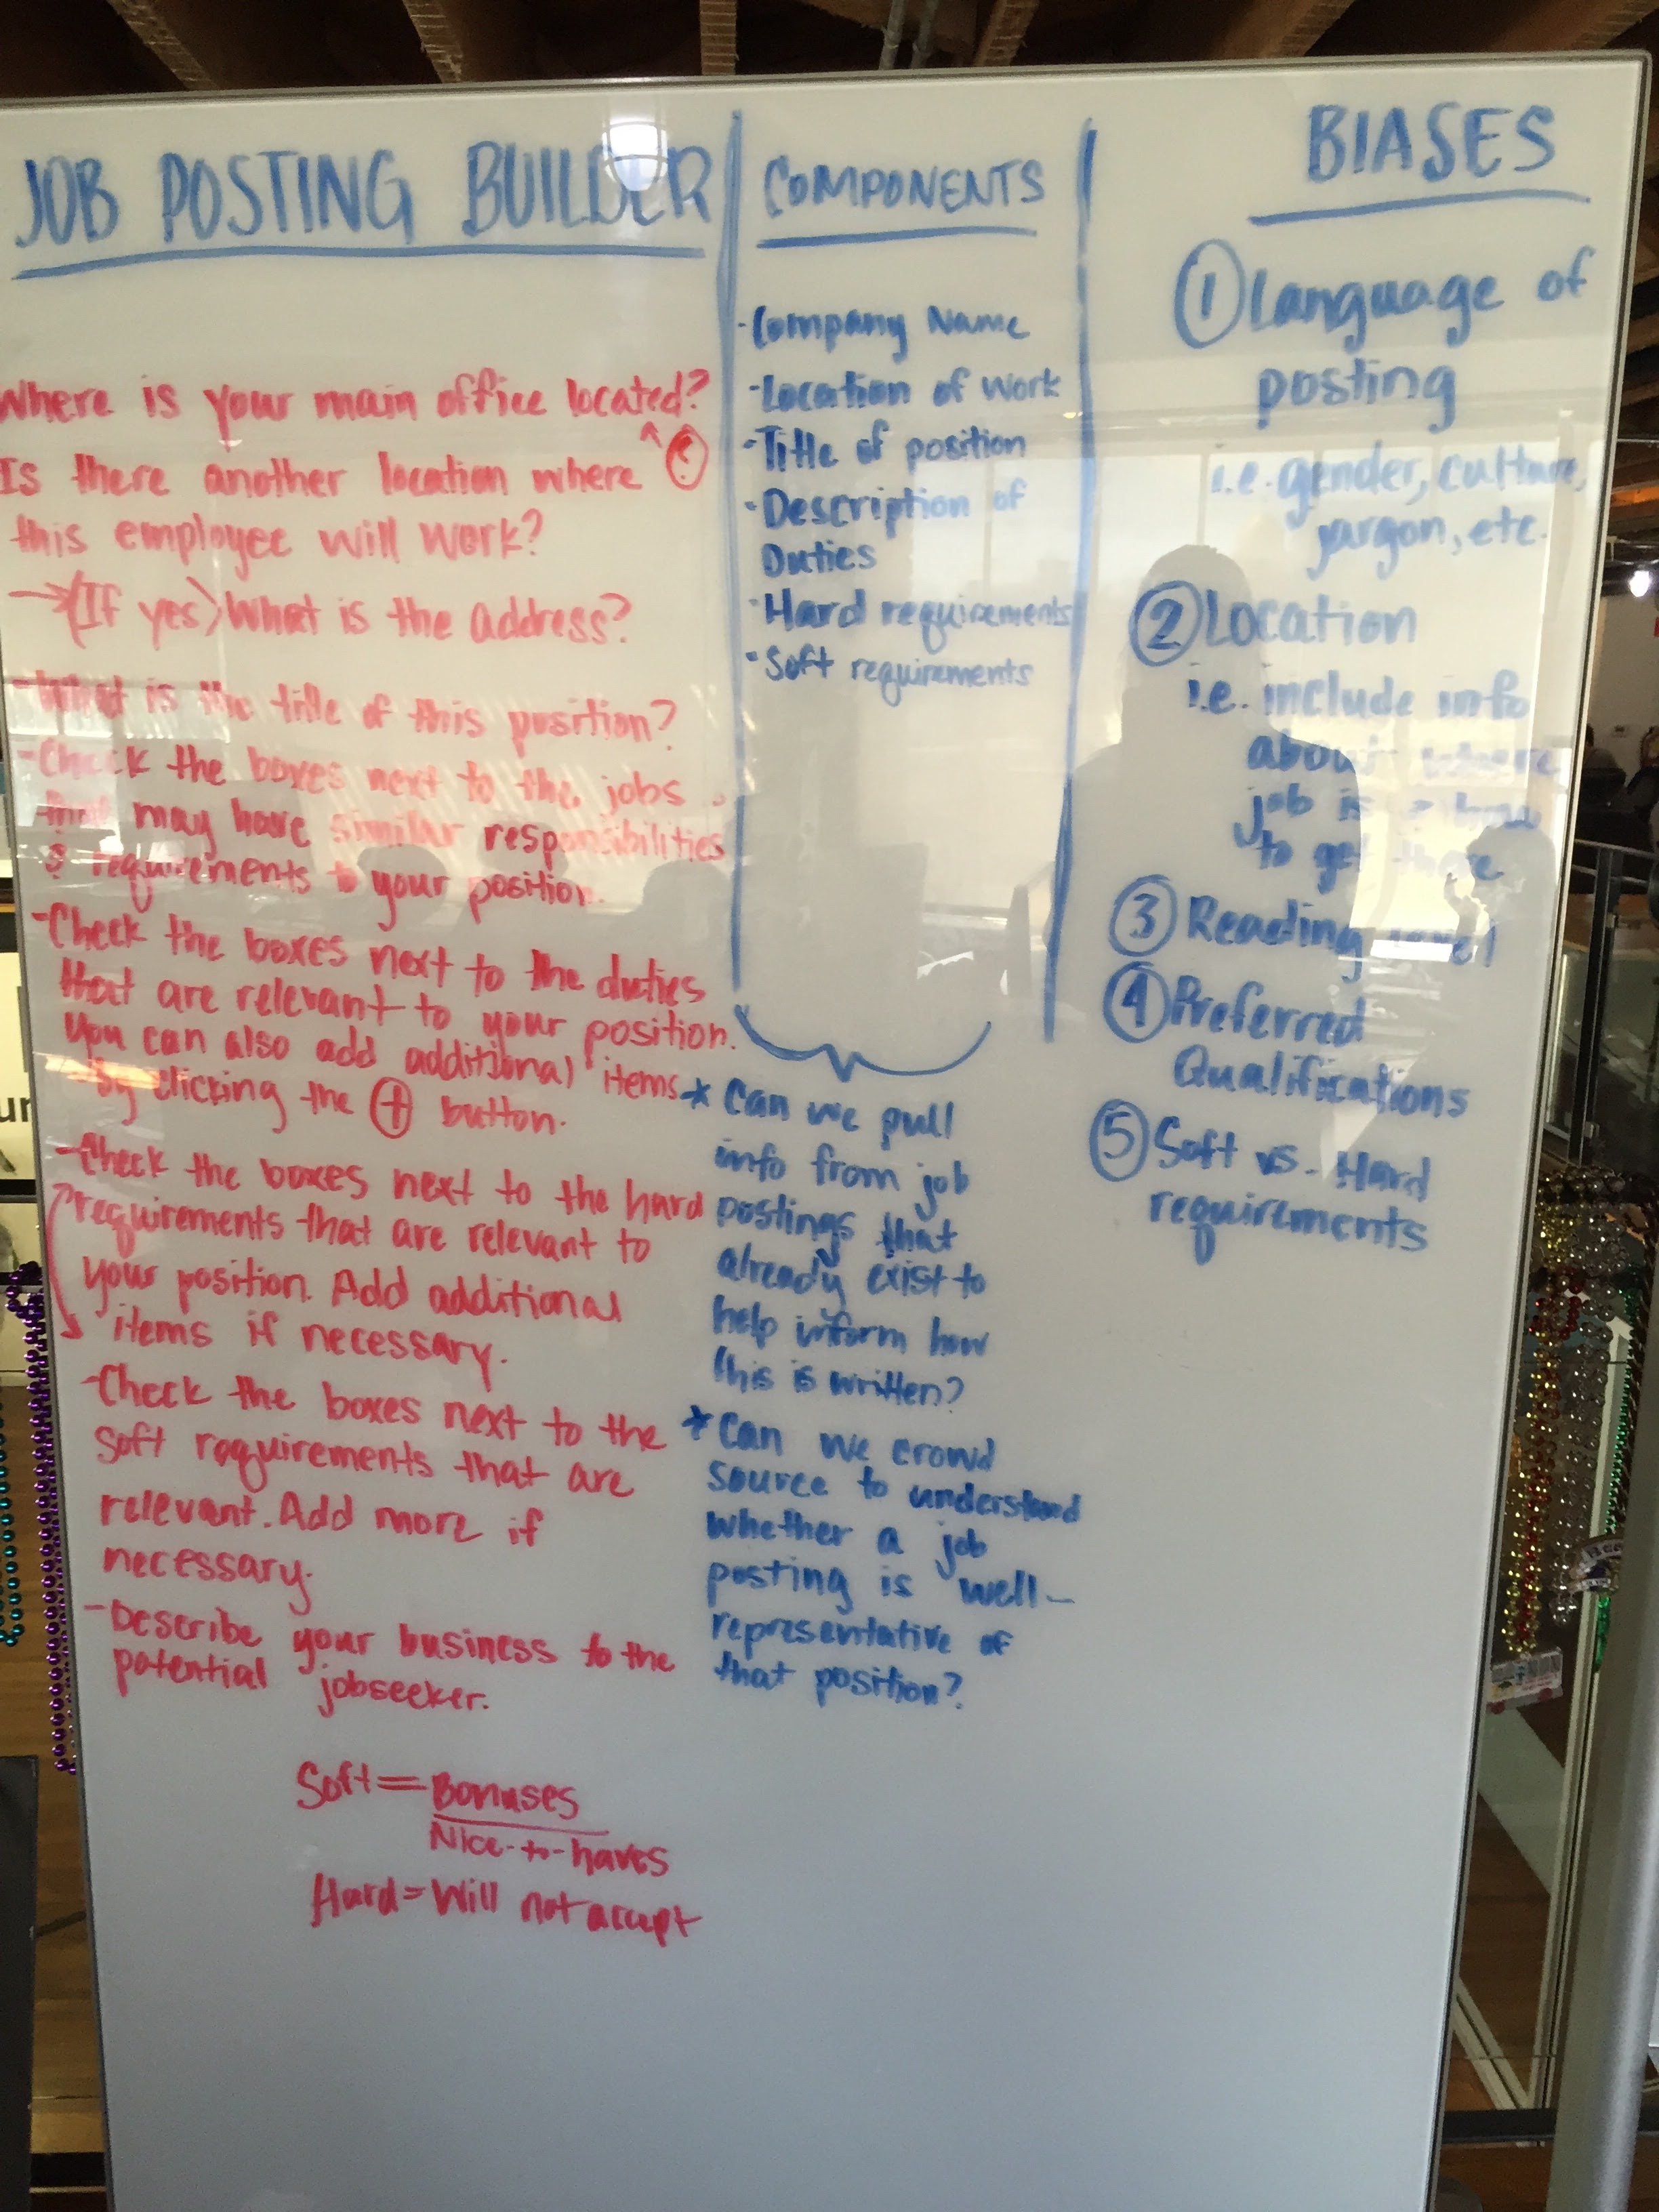 JOB POSTING BUILDER
Where is your main office located?
Is there another location where
this employee will work?
→(If yes) What is the address?
-What is the title of this position?
-Check the boxes next to the jobs
that may have similar responsibilities
& requirements to your position.
-Check the boxes next to the duties
that are relevant to your position.
You can also add additional items
by clicking the + button.
-Check the boxes next to the hard
requirements that are relevant to
your position. Add additional
items if necessary.
-Check the boxes next to the
soft requirements that are
relevant. Add more if
necessary.
-Describe your business to the
potential jobseeker.
Soft = Bonuses
Nice-to-haves
Hard = Will not accept
COMPONENTS
-Company Name
-Location of work
-Title of position
•Description of
Duties
•Hard requirements
•Soft requirements
* Can we pull
info from job
postings that
already exist to
help inform how
this is written?
* Can we crowd
source to understand
whether a job
posting is well-
representative of
that position?
BIASES
① Language of
posting
i.e. gender, culture,
jargon, etc.
② Location
i.e. include info
about where
job is & how
to get there
③ Reading level
④ Preferred
Qualifications
⑤ Soft vs. Hard
requirements